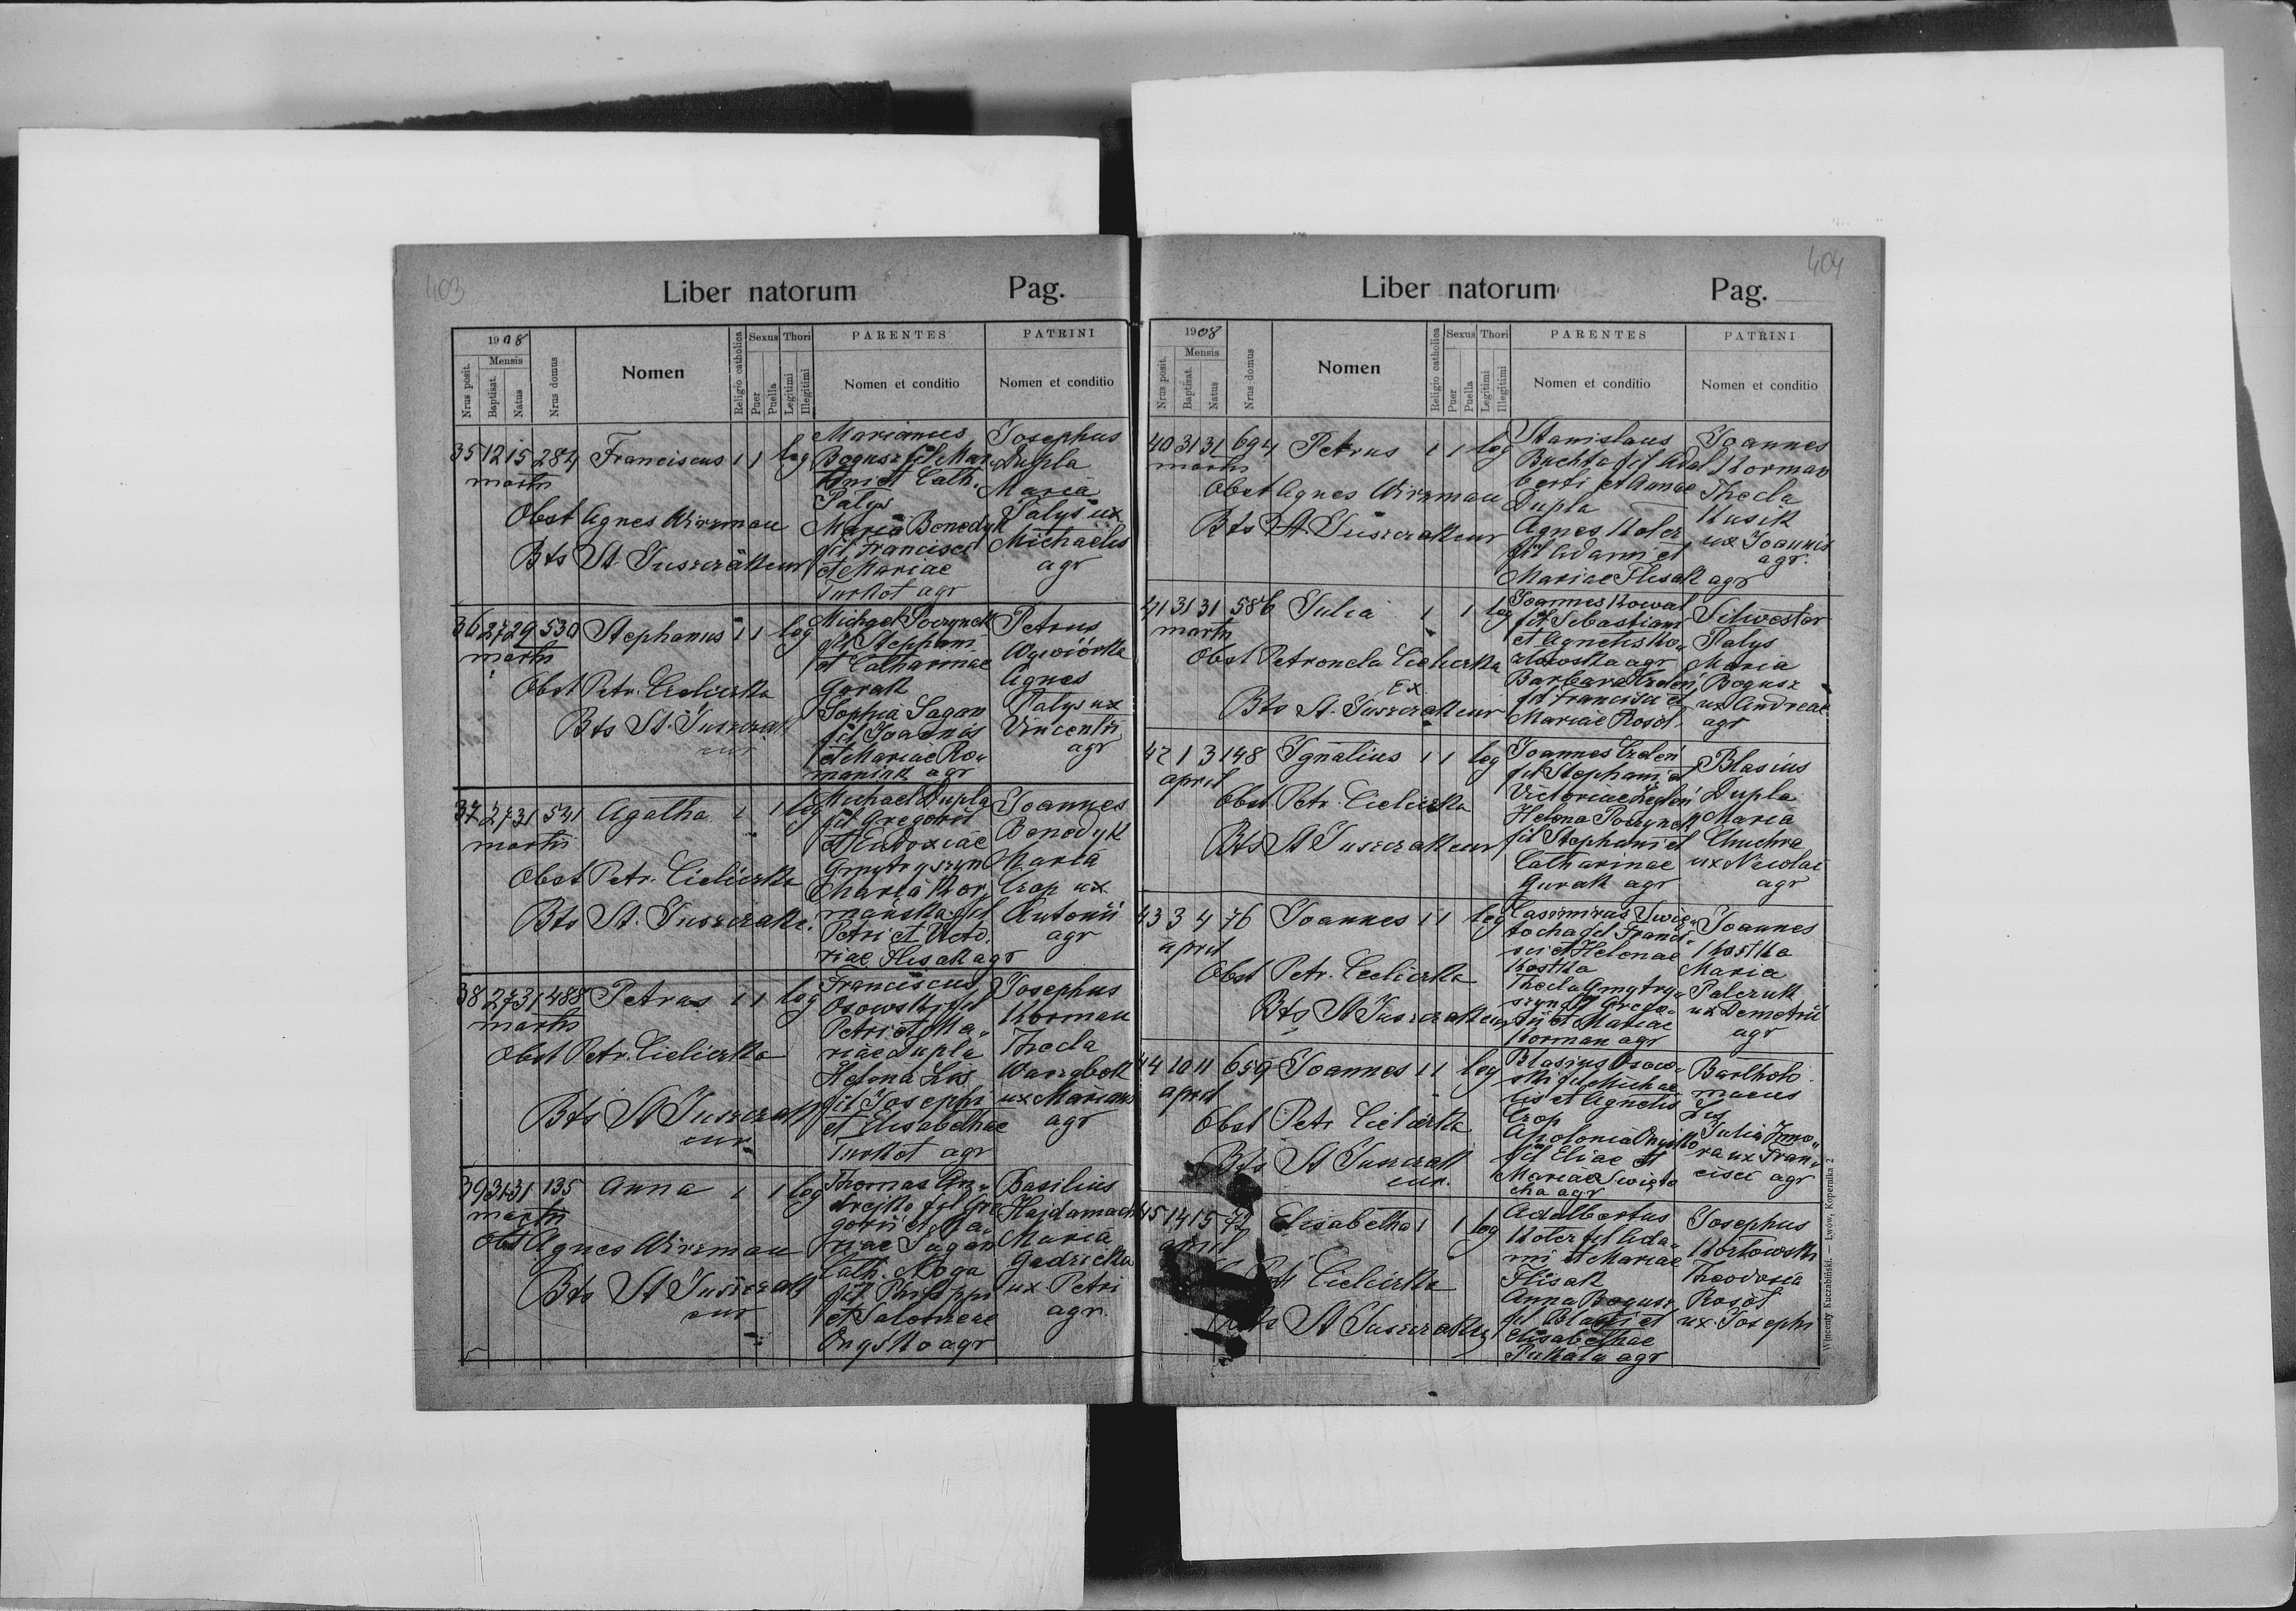 403
Liber natorum Pag.
1908
Nrus posit.
Mensis
Baptisat.
Natus
Nrus domus
Nomen
Religio catholica
Sexus
Puer
Puella
Thori
Legitimi
Illegitimi
PARENTES
Nomen et conditio
PATRINI
Nomen et conditio
35 12 15 284 Franciscus 1 1 leg
martii
Obst Agnes Wirzman
Bts St. Juszczak cur
Marianus
Bogusz fil Mar
tini et Cath.
Palys
Maria Benedyk
fil Francisci
et Mariae
Turkot agr
Josephus
Dupla
Maria
Palys ux
Michaelis
agr
36 27 29 530 Stephanus 1 1 leg
martii
Obst Petr. Cieliczka
Bts St. Juszczak
cur
Michael Poczynek
fil Stephani
et Catharinae
Gorak
Sophia Sagan
fil Joannis
et Mariae Ro„
maniak agr
Petrus
Wywiórka
Agnes
Palys ux
Vincentii
agr
37 27 31 541 Agatha 1 1 leg
martii
Obst Petr. Cieliczka
Bts St. Juszczak c.
Michael Dupla
fil Gregorii
et Eudoxiae
Gmytryszyn
Maria Kor„
mańska fil
Petri et Victo„
riae Flisak agr
Joannes
Benedyk
Maria
Czop ux
Antonii
agr
38 27 31 488 Petrus 1 1 leg
martii
Obst Petr. Cieliczka
Bts St Juszczak
cur
Franciscus
Osowski fil
Petri et Ma„
riae Dupla
Helena Lis
fil Josephi
et Elisabethae
Turkot agr
Josephus
Korman
Thecla
ux Mariani
agr
39 31 31 135 Anna 1 1 leg
martii
Obst Agnes Wirzman
Bts St Juszczak
cur
Thomas An„
drejko fil Gre
gorii et Ma„
riae Sagan
Cath. Noga
fil Philippi
et Salomeae
Onyśko agr
Basilius
Hajdamach
Maria
Gadzicka
ux Petri
agr.
404
Liber natorum Pag.
1908
Nrus posit.
Mensis
Baptisat.
Natus
Nrus domus
Nomen
Religio catholica
Sexus
Puer
Puella
Thori
Legitimi
Illegitimi
PARENTES
Nomen et conditio
PATRINI
Nomen et conditio
40 31 31 694 Petrus 1 1 leg
martii
Obst Agnes Wirzman
Bts St. Juszczak cur
Stanislaus
Buchta fil Adal
berti et Annae
Dupla
Agnes Kolcz
fil Adami et
Mariae Flisak agr
Joannes
Korman
Thecla
Kusik
ux Joannis
agr.
41 31 31 586 Julia 1 1 leg
martii
Obst Petronela Cieliczka
Ex
Bts St. Juszczak cur
Joannes Kowal
fil Sebastiani
et Agnetis Ko„
złowska agr
Barbara Czeleń
fil Francisci et
Mariae Rosół
Silwester
Palys
Maria
Bogusz
ux Andreae
agr
42 1 3 148 Ignatius 1 1 leg
april
Obst. Petr. Cieliczka
Bts St Juszczak cur
Joannes Czeleń
fil Stephani et
Victoriae Czeleń
Helena Poczynek
fil Stephani et
Catharinae
Gurak agr
Blasius
Dupla
Maria
Chuchra
ux Nicolai
agr
43 3 4 76 Joannes 1 1 leg
april
Obst Petr. Cieliczka
Bts St Juszczak cur
Casimirus Swię„
tocha fil Franci„
sci et Helenae
Kostka
Thecla Gmytry„
szyn fil Grego„
rii et Mariae
Korman agr
Joannes
Kostka
Maria
Palczuk
ux Demetrii
agr
44 10 11 659 Joannes 1 1 leg
april
Obst Petr Cieliczka
Bts St Juszczak
cur.
Blasius Osow„
ski fil Michae
lis et Agnetis
Czop
Apolonia Onyśko
fil Eliae et
Mariae Swięto
cha agr
Bartholo
maeus
Lis
Julia Jawo„
ra ux Fran„
cisci agr
45 14 15 72 Elisabetha 1 1 leg
april
Cieliczka
Bts St Juszczak c
Adalbertus
Kolcz fil Ada„
mi et Mariae
Flisak
Anna Bogusz
fil Blasii et
Elisabethae
Pukala agr
Josephus
Kozłowski
Theodosia
Rosół
ux Josephi
Wincenty Kuczabiński. — Lwów, Kopernika 2